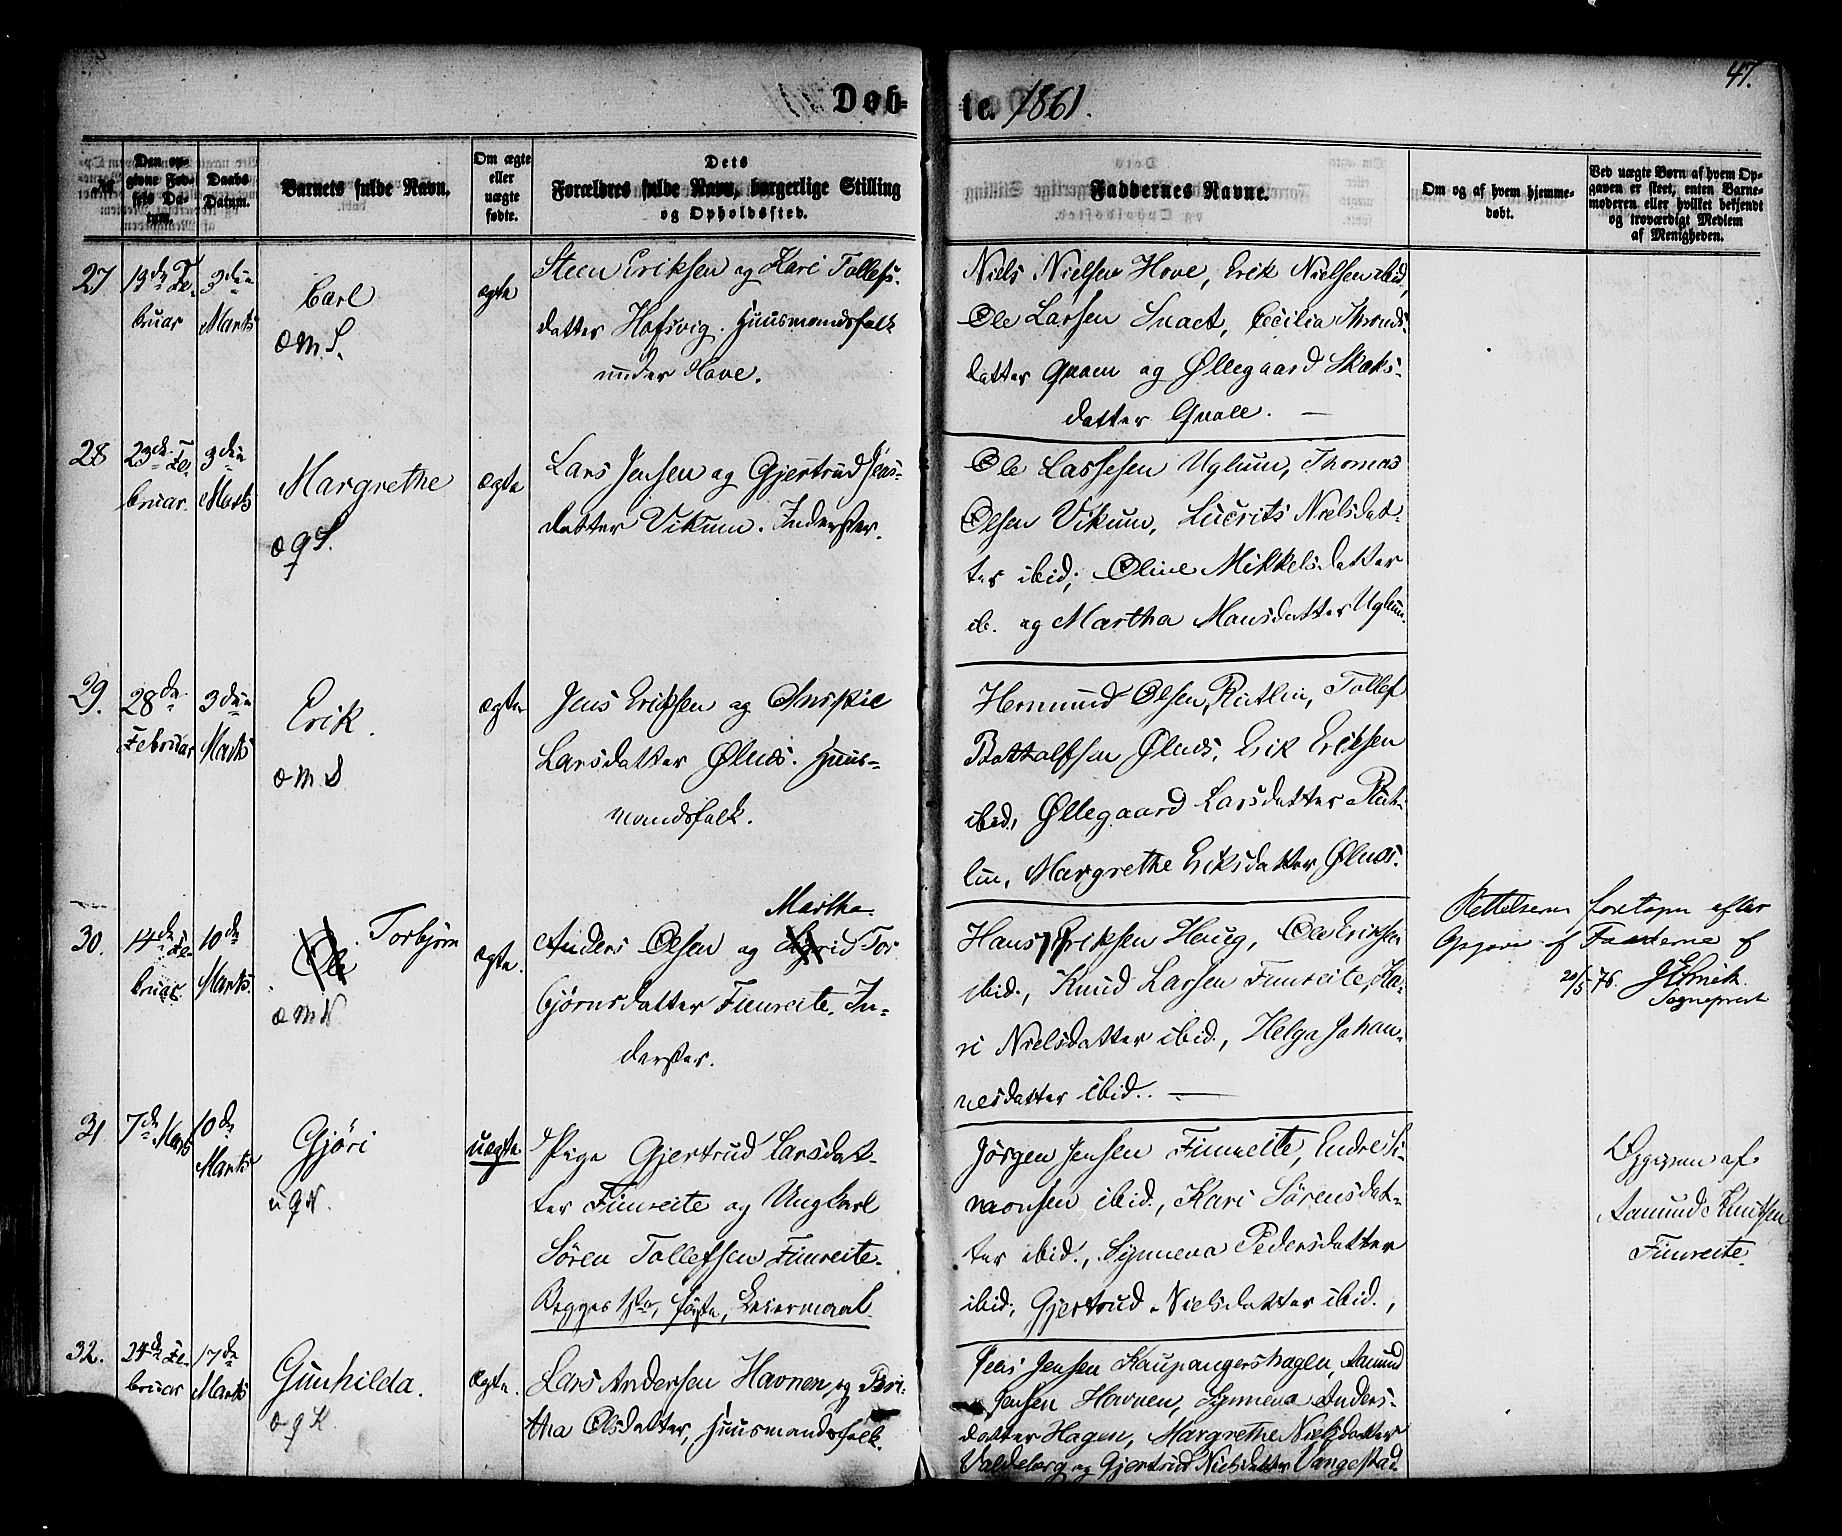 47.
Døb-
te. 1861.
№
Den op-
givne Fød-
sels Da-
tum.
Daabs
Datum.
Barnets fulde Navn.
Om ægte
eller
uægte
født.
Dets
Forældres fulde Navn, borgerlige Stilling
og Opholdssted.
Faddernes Navne.
Om og af hvem hjemme-
døbt.
Ved uægte Børn af hvem Op-
gaven er skeet, enten Barne-
moderen eller hvilket bekjendt
og troværdigt Medlem
af Menigheden.
27
19de Fe-
bruar
3die
Marts
Carl
æ m S.
ægte
Steen Eriksen og Kari Tollefs-
datter Hofsvig. Huusmandsfolk
under Hove.
Niels Nielsen Hove, Erik Nielsen ibid,
Ole Larsen Snaet, Cecilia Thronds-
datter Qvaen og Øllegaard
datter Qvale. —
28
23de Fe-
bruar.
3die
Marts
Margrethe
æ q S.
ægte
Lars Jensen og Gjertrud Jens-
datter Vikum. Inderster.
Ole Lassesen Uglum, Thomas
Olsen Vikum, Lucrits Nielsdat-
ter ibid; Oline Mikkelsdatter
ib. og Martha Monsdatter Uglum.
29.
28de
Februar
3die
Marts
Erik.
æ m S
ægte
Jens Eriksen og
Larsdatter Ølnæs. Huus-
mandsfolk.
Hermund Olsen Rutlin, Tollef
Bottolfsen Ølnæs, Erik Eriksen
ibid, Øllegaard Larsdatter Rut-
lin, Margrethe Eriksdatter Ølnæs.
30.
14de Fe-
bruar
10de
Marts.
Ole Torbjørn
æ m N.
ægte.
Martha.
Anders Olsen og Sigrid Tor-
bjørnsdatter Fimreite, In-
derster.
Hans Eriksen Houg, Ole Eriksen
ibid., Knud Larsen Fimreite, Ka-
ri Nielsdatter ibid., Helga Johan-
nesdatter ibid.. —
Rettelserne foretagne efter
Opgave af Fadderne
20/5 76.
Sogneprest
31
7de Marts
10de
Marts
Gjöri
u q N.
uægte
Pige Gjertrud Larsdat-
ter Fimreite og Ungkarl
Søren Tollefsen Fimreite.
Begges 1ste, første, Leiermaal.
Jørgen Jensen Fimreite, Endre Si-
monsen ibid., Kari Sörensdat-
ter ibid., Synneva Pedersdatter
ibid, Gjertrud Nielsdatter ibid.,
Opgiven af
Aamund Knutsen
Fimreite.
32.
24de Fe-
bruar
17de
Marts
Gunhilda.
æ q K.
ægte.
Lars Andersen Havnen, og Bri-
tha Olsdatter, Huusmandsfolk.
Jens Jensen Kaupangershagen, Aamund
Jensen Havnen, Synneva Anders-
datter Hagen, Margrethe Nielsdatter
Valdeborg og Gjertrud Nielsdatter Vangestad.